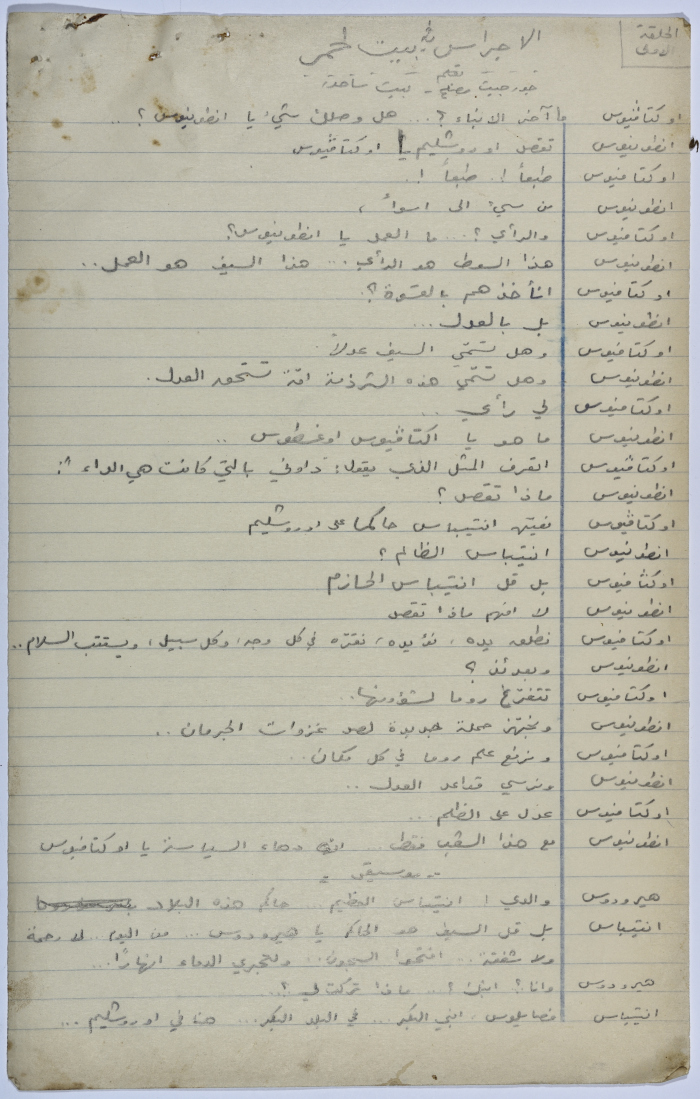 الحلقة
الاولى
الاجراس في بيت لحم
بقلم
جورجيت بيت ساحور
اوكتاڤيوس ما آخر الانباء ؟... هل وصلك شيء يا انطونيوس ؟ ..
انطونيوس تقصد اوروشليم يا اوكتاڤيوس
اوكتافيوس طبعاً !. طبعاً !.
انطونيوس من سيئ الى اسوأ ،
اوكتافيوس والرأي ؟... ما العمل يا انطونيوس؟
انطونيوس هذا السوط هو الرأي ... هذا السيف هو العمل..
اوكتافيوس أنأخذهم بالقسوة ؟.
انطونيوس بل بالعدل ...
اوكتافيوس وهل تسمّي السيف عدلاً
انطونيوس وهل تسمّي هذه الشرذمة امّة تستحق العدل.
اوكتافيوس لي رأي ..
انطونيوس ما هو يا اكتاڤيوس اوغسطوس ..
اوكتاڤيوس اتعرف المثل الذي يقول: داوني بالتي كانت هي الداء ؟:
انطونيوس ماذا تقصد ؟
اوكتاڤيوس نعيّن انتيباس حاكما على اوروشليم
انطونيوس انتيباس الظالم ؟
اوكتافيوس بل قل انتيباس الحازم
انطونيوس لا افهم ماذا تقصد
اوكتافيوس نطلق يده ، نؤيده ، نعزّزه في كل وجه، وكل سبيل ، ويستتب السلام ..
انطونيوس وبعدئذ ؟
اوكتافيوس تتفرّغ روما لشؤونها..
انطونيوس ونجهّز حملة جديدة لصد غزوات الجرمان ..
اوكتافيوس ونرفع علم روما في كل مكان ..
انطونيوس ونرسي قواعد العدل ..
اوكتافيوس عدل على الظلم ...
انطونيوس مع هذا الشعب فقط ... دهاء السياسة يا اوكتافيوس
- موسيقى -
هيرودوس والدي ! انتيباس العظيم ... حاكم هذه البلاد
انتيباس بل قل السيف هو الحاكم يا هيرودوس ... من اليوم .. لا رحمة
ولا شفقة ... افتحوا السجون .. ولتجري الدماء انهارًا ...
هيرودوس وانا؟ ابنك ؟ ... ماذا تركت لي ؟..
انتيباس فصايلوس ، ابني البكر ... في البلد البكر ... هنا في اوروشليم ...